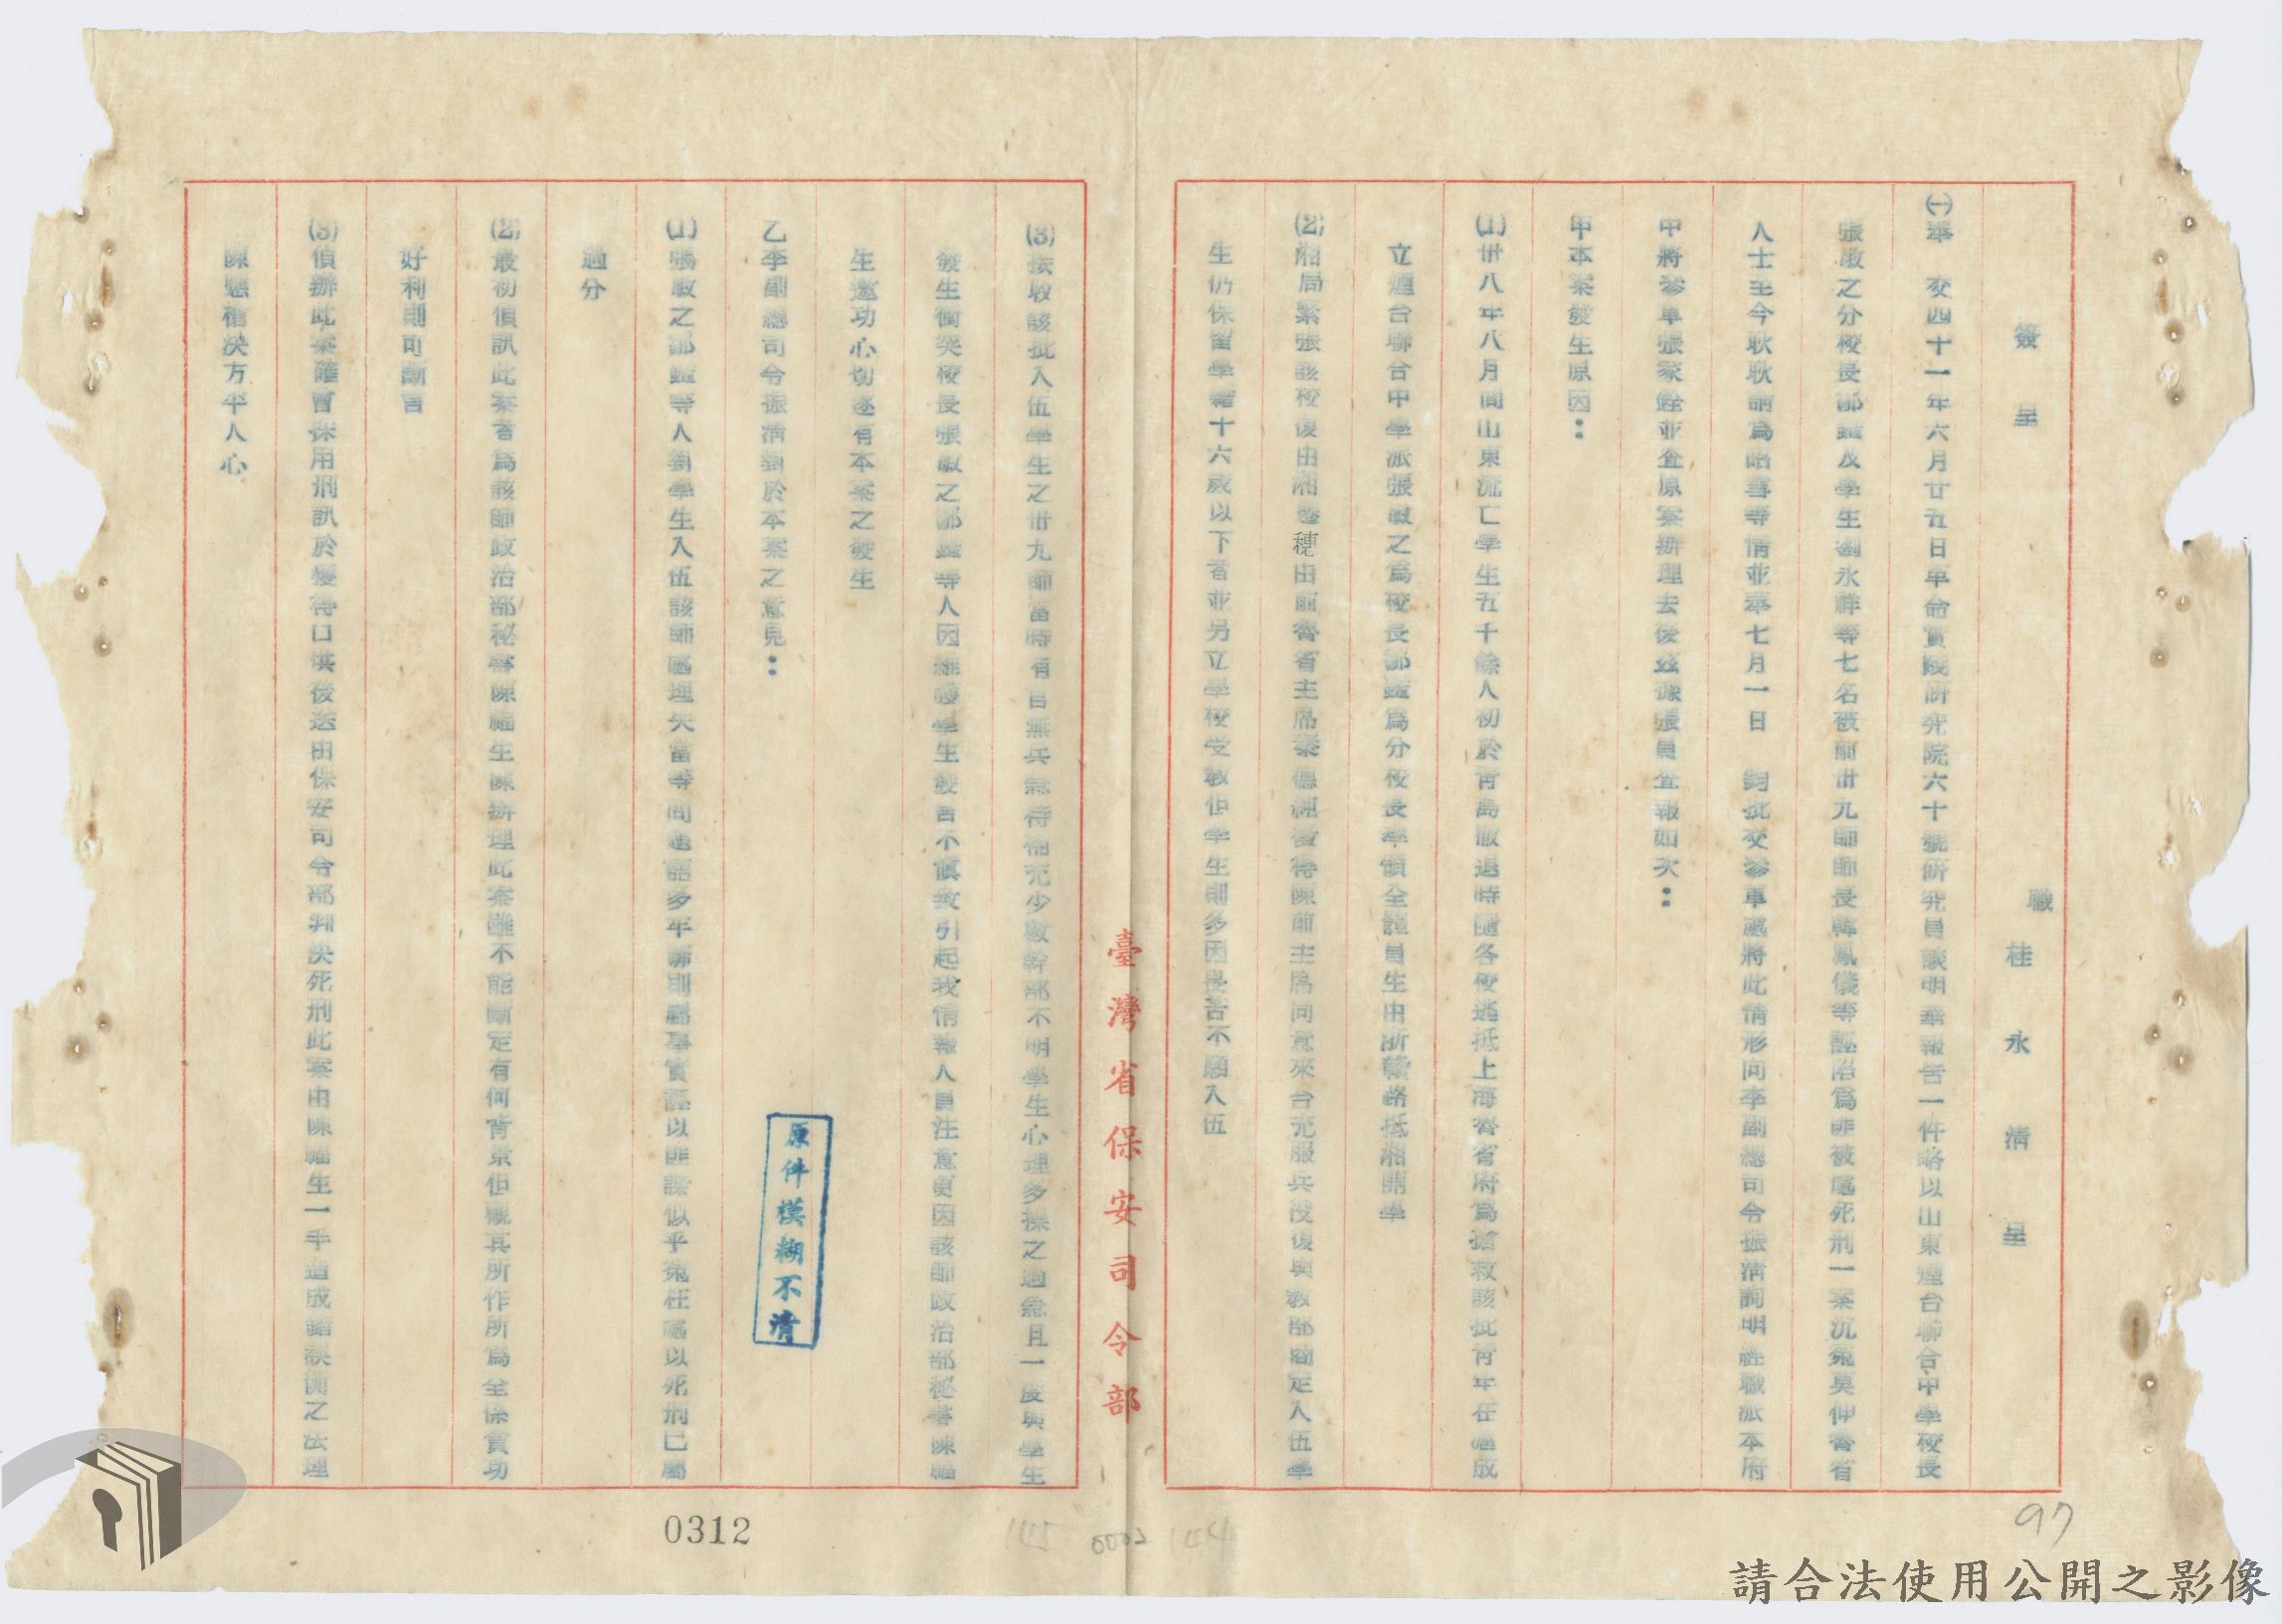 簽呈
職
桂永清呈
㈠奉　交四十一年六月廿五日革命實踐研究院六十號研究員談明華報告一件略以山東煙台聯合中學校長
張敏之分校長鄒鑑及學生劉永祥等七名被前卅九師師長韓鳳儀等誣陷為匪被處死刑一案沉冤莫伸魯省
人士至今耿耿請為昭雪等情並奉七月一日　鈞批交參軍處將此情形向李副總司令振清詢明經職派本府
中將參軍張家銓並查原案辦理去後茲據張員查報如次：
甲本案發生原因：
(1)卅八年八月間山東流亡學生五千餘人初於青島撤退時隨各校逃抵上海魯省府為搶救該批青年在滬成
立煙台聯合中學派張敏之為校長鄒鑑為分校長率領全體員生由浙贛路抵湘開學
(2)湘局緊張該校復由湘遷穗由前魯省主席秦德純徵得陳前主席同意來台充服兵役復與教部商定入伍學
生仍保留學籍十六歲以下者並另立學校受教但學生則多因畏苦不願入伍
(3)接收該批入伍學生之卅九師當時有官無兵急待補充少數幹部不明學生心理多操之過急且一度與學生
發生衝突校長張敏之鄒鑑等人因維護學生發言不慎致引起我情報人員注意更因該師政治部秘書陳福
生邀功心切遂有本案之發生
乙李副總司令振清對於本案之意見：
(1)張敏之鄒鑑等人對學生入伍該師處理失當等問題諸多牢騷則屬事實誣以匪諜似乎冤枉處以死刑已屬
過分
(2)最初偵訊此案者為該師政治部秘書陳福生陳辦理此案雖不能斷定有何背景但概其所作所為全係貪功
好利則可斷言
(3)偵辦此案確曾採用刑訊於獲得口供後送由保安司令部判決死刑此案由陳福生一手造成錯誤衡之法理
陳應槍決方平人心
臺灣省保安司令部
原件模糊不清
0312
145 0002 144
97
請合法使用公開之影像